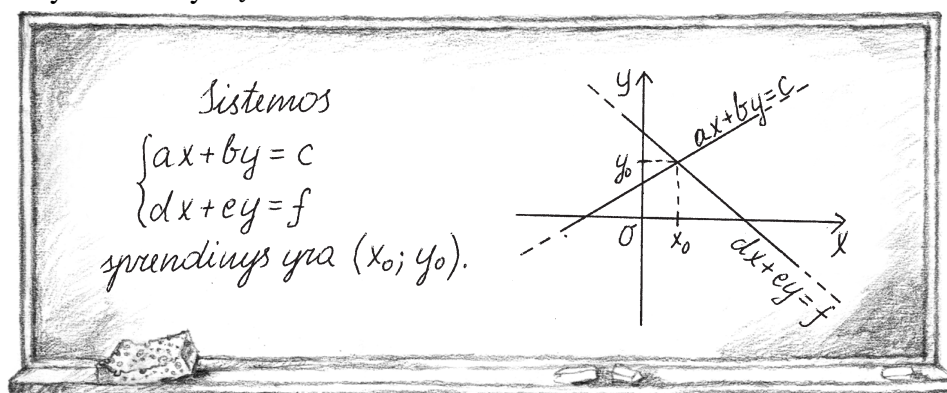 Sistemos
ax+by=c
dx+ey=f
sprendinys yra (x₀; y₀).
y
ax+by=c
y₀
O
x₀
x
dx+ey=f